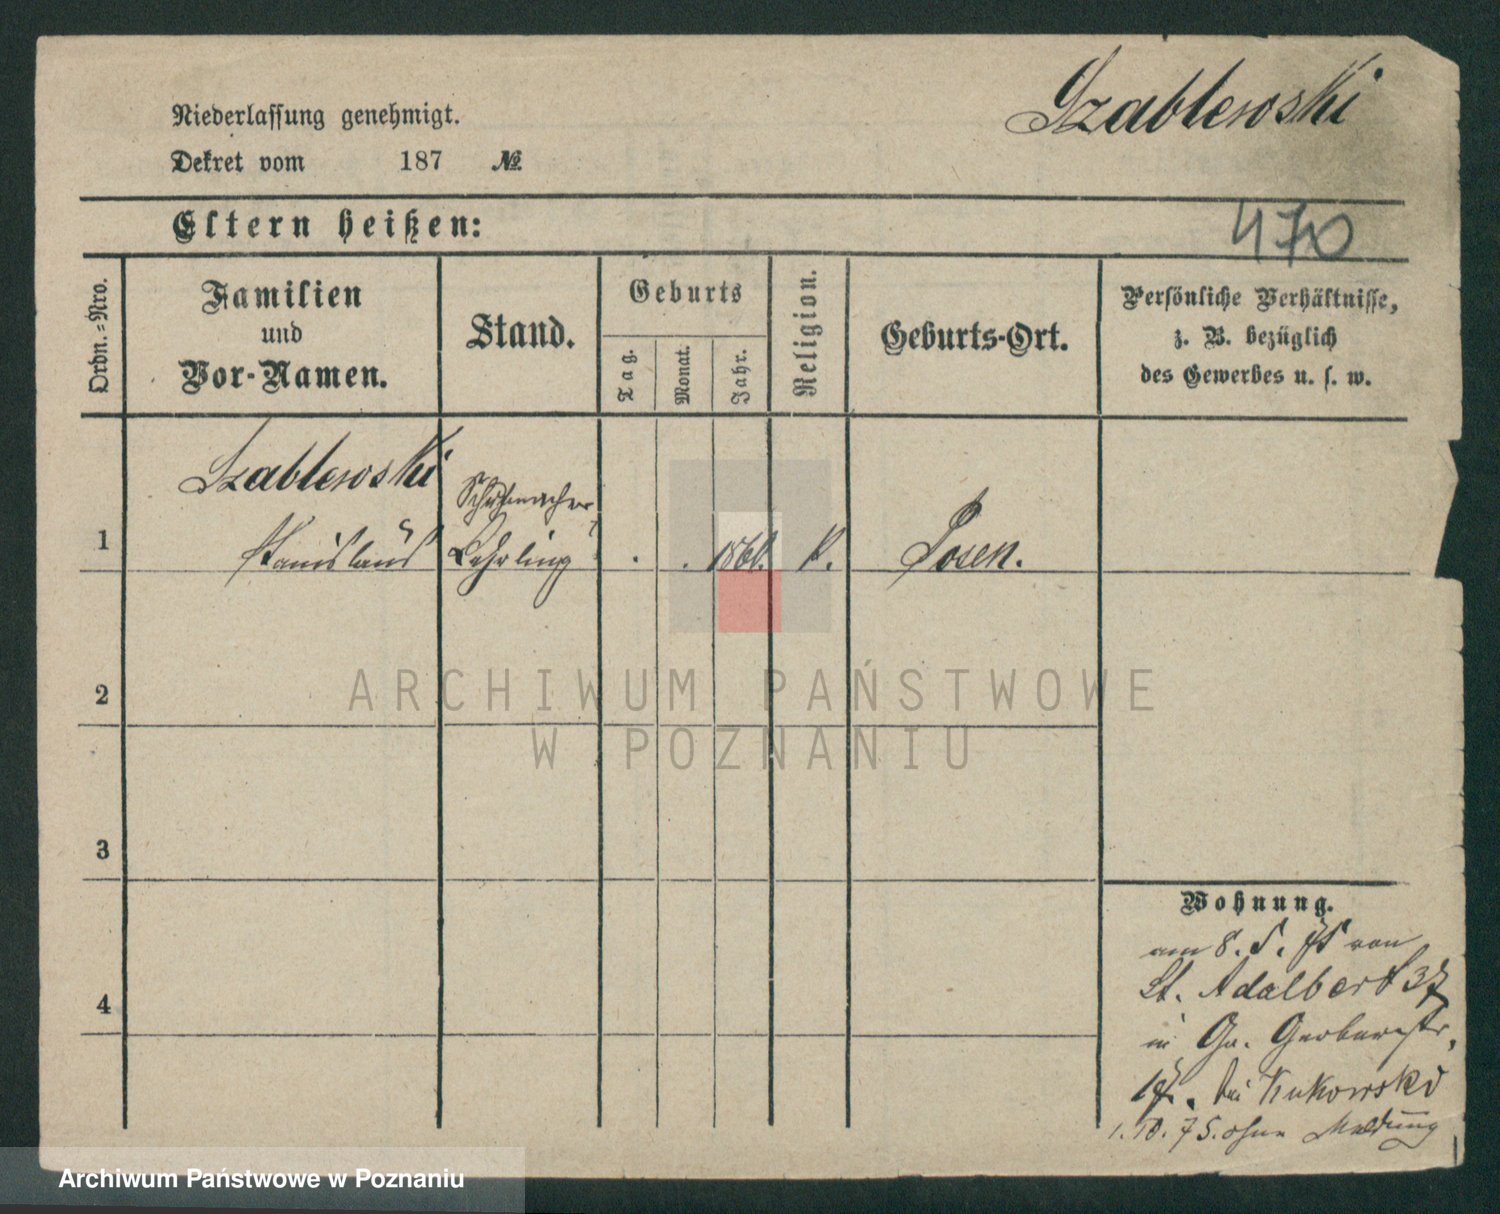 Szablewski
Niederlassung genehmigt.
Dekret vom 187 №
470
Eltern heißen:
Ordn.=Nro.
Familien
und
Vor-Namen.
Stand.
Geburts
Tag.
Monat.
Jahr.
Religion.
Geburts-Ort.
Persönliche Verhältnisse,
z. B. bezüglich
des Gewerbes u. s. w.
Szablewski
Schuhmacher
1 Stanislaus Lehrling . . 1860. k. Posen.
2
ARCHIWUM PAŃSTWOWE
W POZNANIU
3
Wohnung.
am 8. 5. 75 von
St. Adalbert 37
4
in Gr. Gerberstr.
17. bei Kukowski
1. 10. 75. ohne Meldung
Archiwum Państwowe w Poznaniu